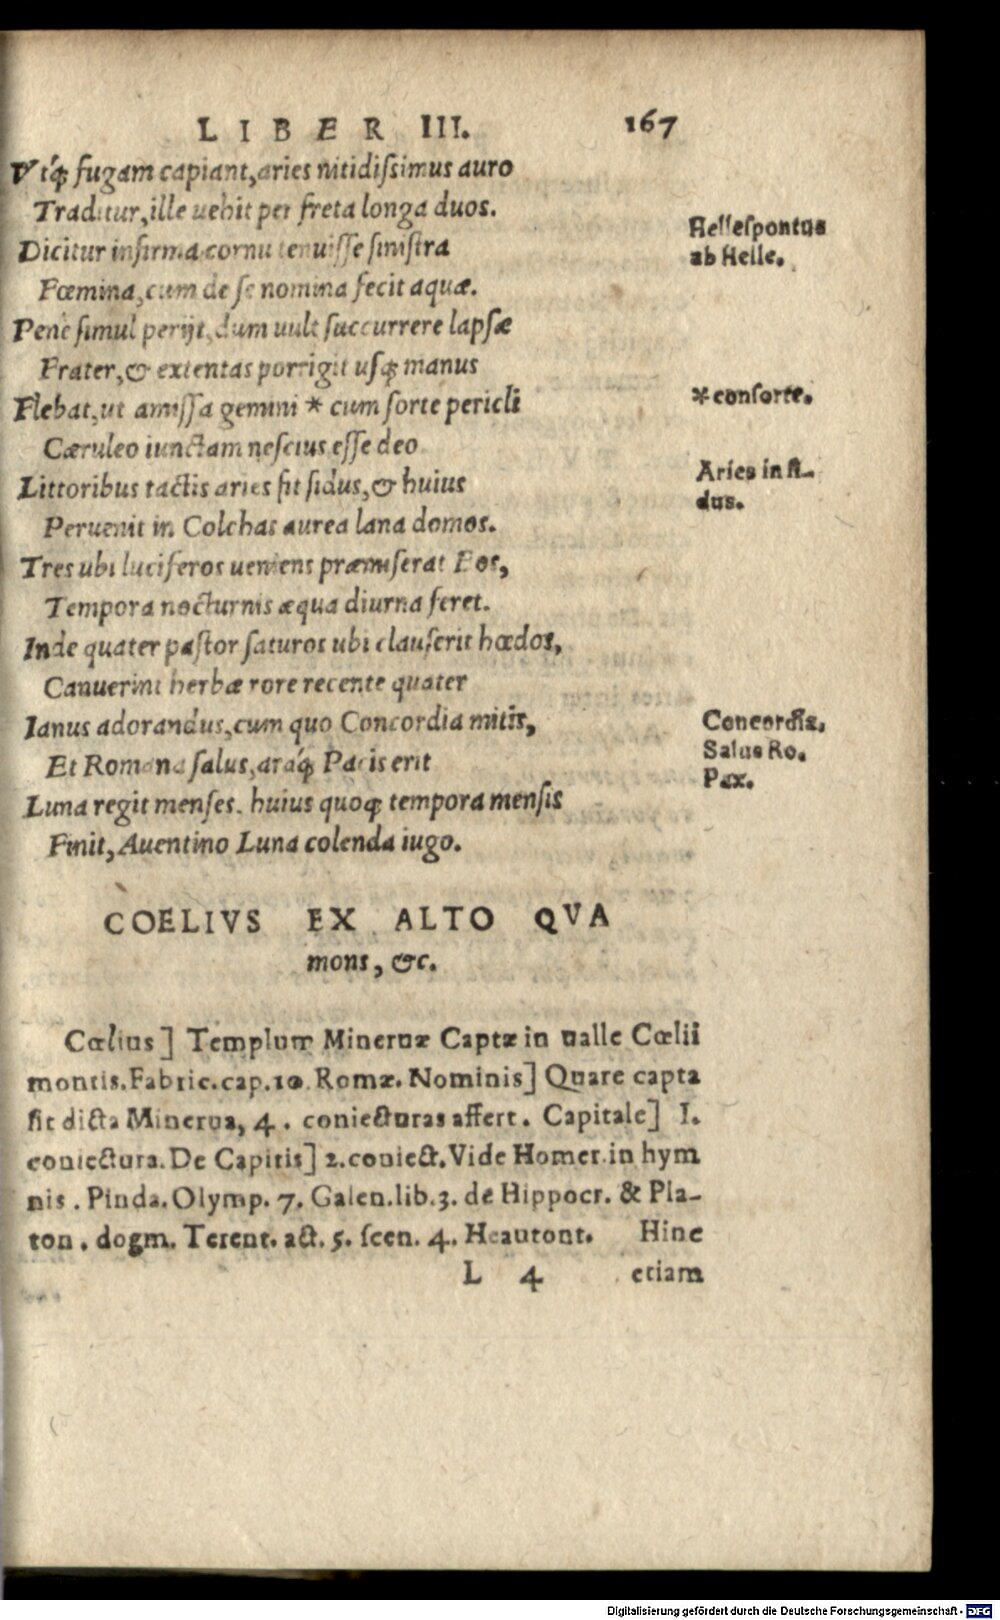 LIBER III. 167
Vtq́; fugam capiant, aries nitidißimus auro
Traditur, ille uehit per freta longa duos.
Dicitur infirma cornu tenuisse sinistra
Fœmina, cum de se nomina fecit aquæ.
Hellespontus
ab Helle.
Penè simul perijt, dum uult succurrere lapsæ
Frater, & extentas porrigit usq; manus
Flebat, ut amissa gemini * cum sorte pericli
* consorte.
Cæruleo iunctam nescius esse deo
Littoribus tactis aries fit sidus, & huius
Aries in si-
dus.
Peruenit in Colchas aurea lana domos.
Tres ubi luciferos ueniens præmiserat Eos,
Tempora nocturnis æqua diurna feret.
Inde quater pastor saturos ubi clauserit hœdos,
Canuerint herbæ rore recente quater
Ianus adorandus, cum quo Concordia mitis,
Et Romana salus, araq́; Pacis erit
Concordia.
Salus Ro.
Pax.
Luna regit menses. huius quoq; tempora mensis
Finit, Auentino Luna colenda iugo.
COELIVS EX ALTO QVA
mons, &c.
Cœlius] Templum Mineruæ Captæ in ualle Cœlii
montis. Fabric. cap. 10. Romæ. Nominis] Quare capta
sit dicta Minerua, 4. coniecturas affert. Capitale] I.
coniectura. De Capitis] 2. coniect. Vide Homer. in hym
nis. Pinda. Olymp. 7. Galen. lib. 3. de Hippocr. & Pla-
ton. dogm. Terent. act. 5. scen. 4. Heautont. Hinc
L 4 etiam
Digitalisierung gefördert durch die Deutsche Forschungsgemeinschaft - DFG